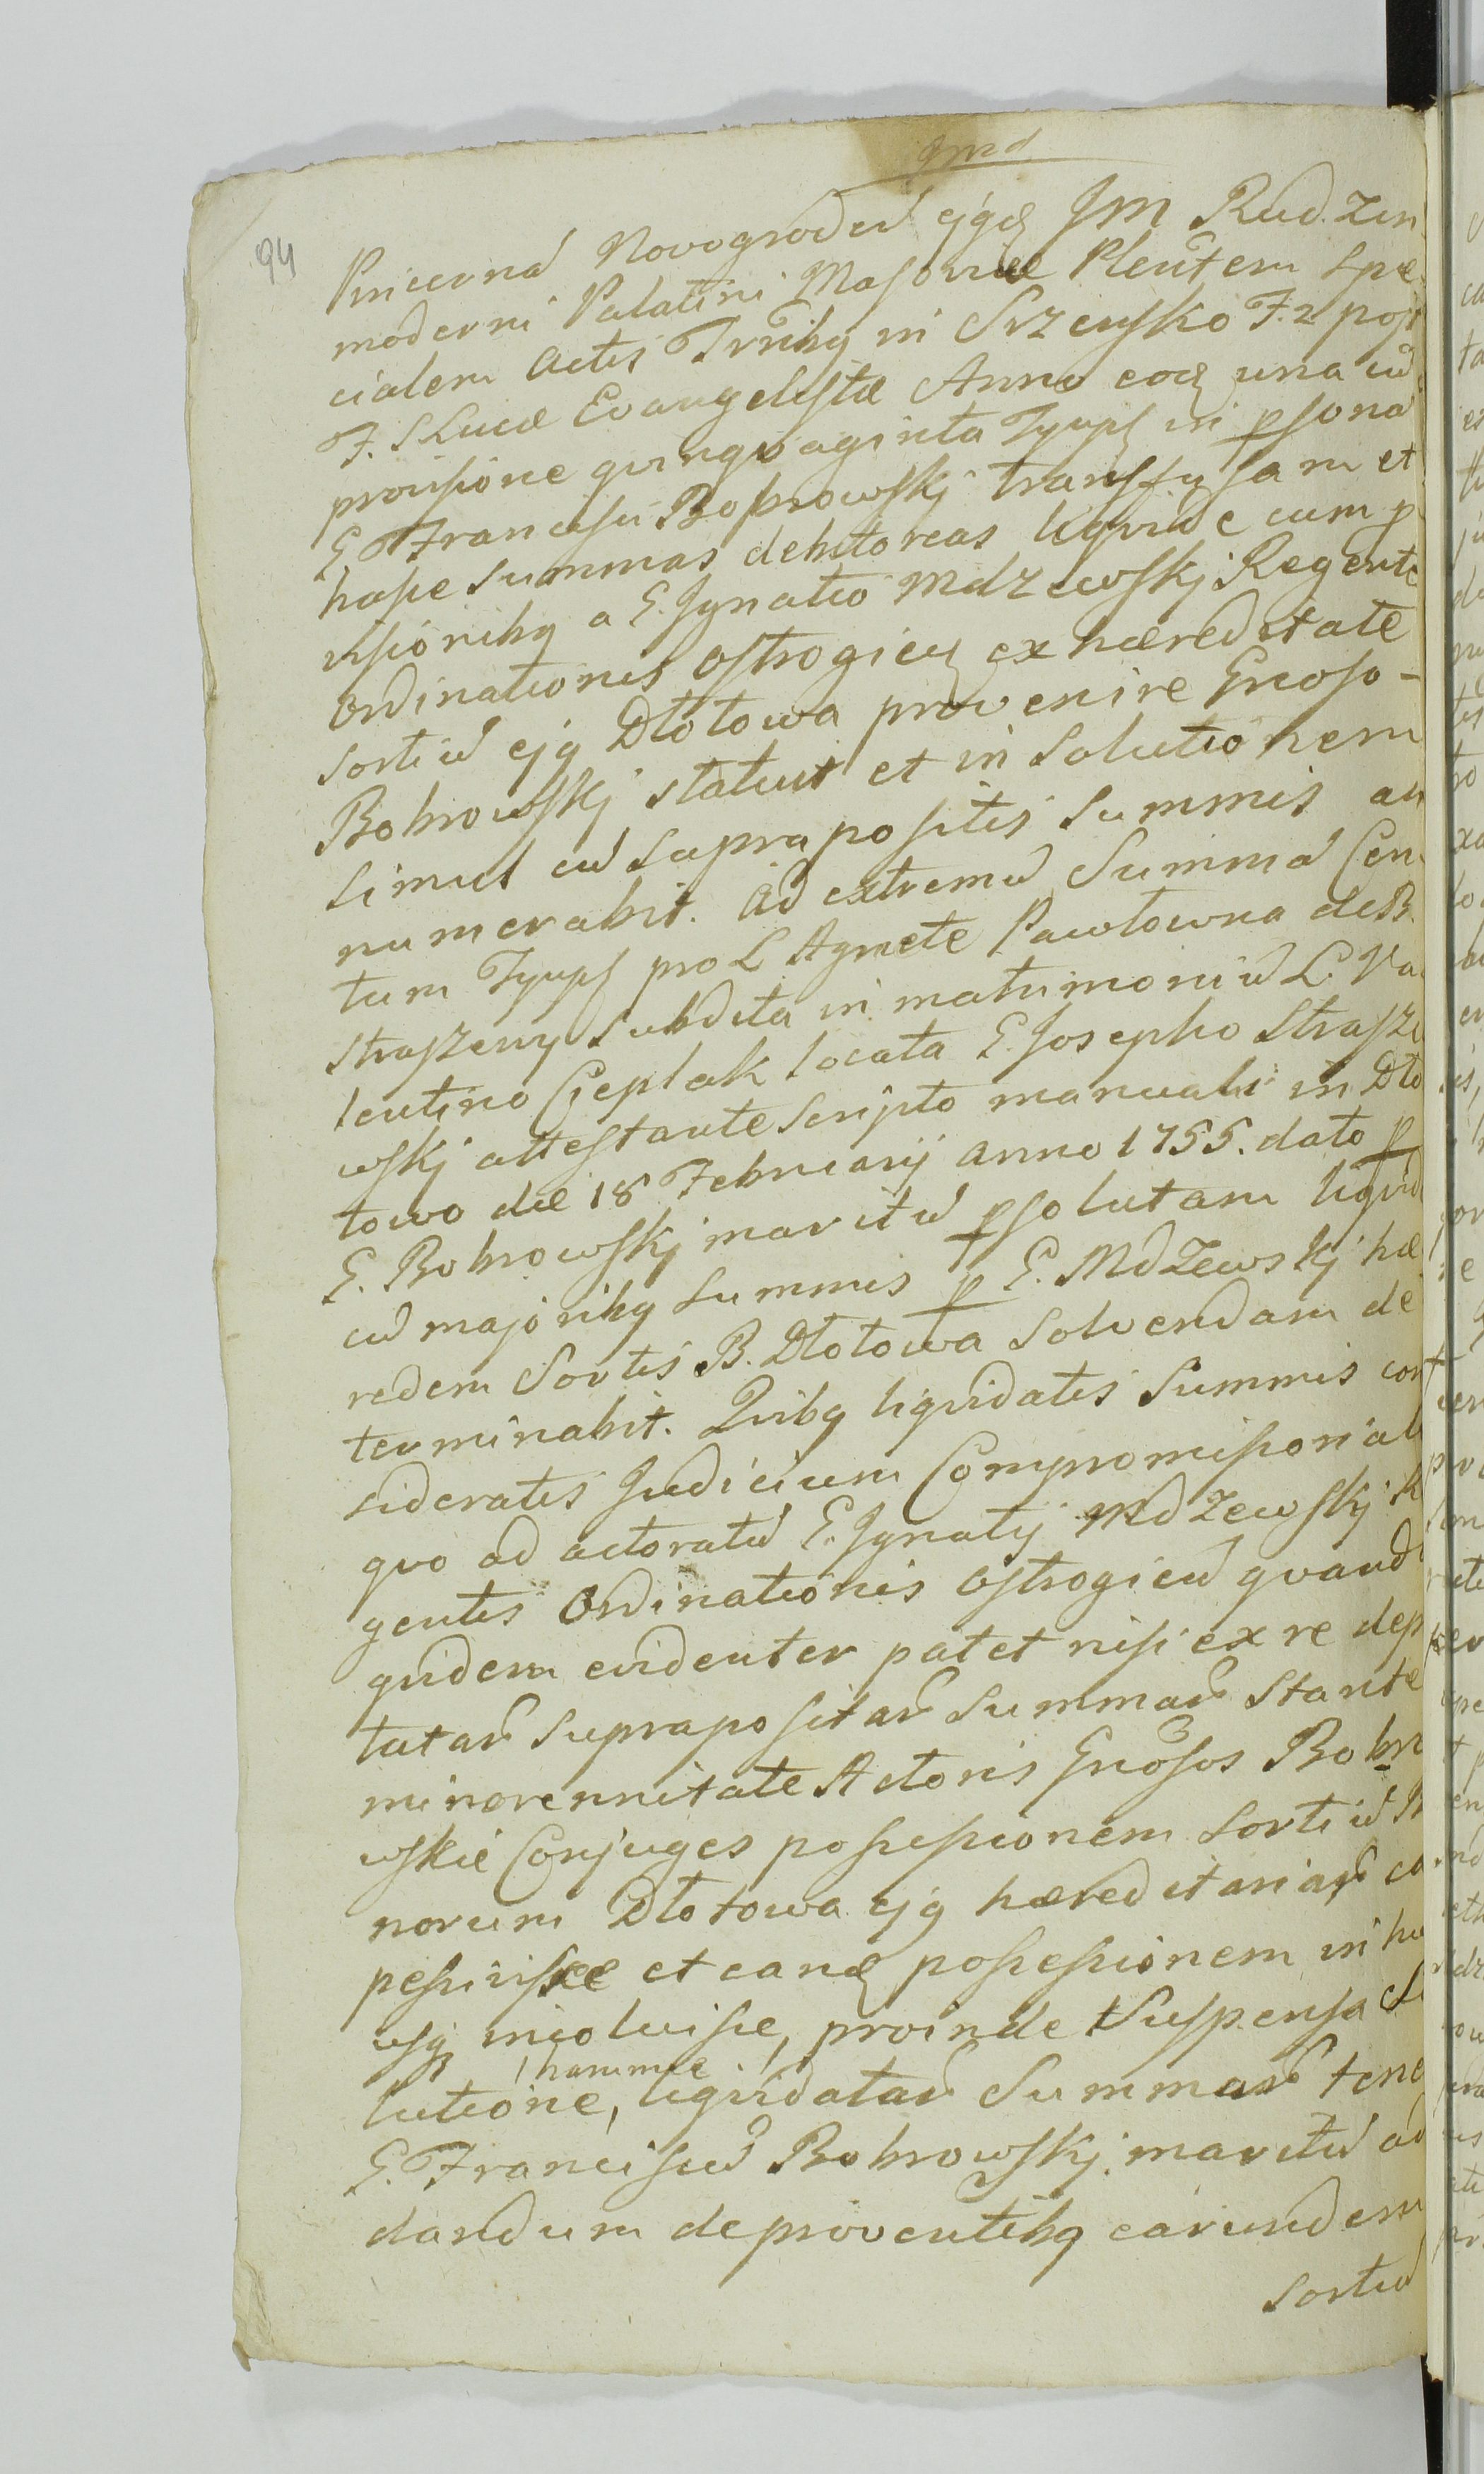 94
Pincernam Novogrodeñ ejqz JM Rudzin
moderni Palatini Masoviæ Plentem Spe
cialem Actis Trñibg in Srzensko F. 2 post
F. S Lucæ Evangelistæ Anno eođ una cũ
provisione qvinqvaginta Tynph in psonã
G. Francisci Bobrowskj transfusam et
hasce summas debitoreas liqvide cum p
visionibg a G. Ignatio Mdzewskj Regente
Ordinationis Ostrogien ex hæreditate
sortiũ ejg Dłotowa provenire Gnoso-
Bobrowskj statuit et in solutionem
simul cũ suprapositis Summis an
numerabit. Ad extremũ Summã Cen
tum Tynph pro L Agnete Pawłowna de B.
Straszewy subdita in matrimoniũ L. Va
lentino Cieplak locata G. Josepho Strasze
wskj attestante scripto manuali in Dło
towo die 18 Februarij anno 1755. dato p
G. Bobrowskj maritũ psolutam liqvid
cũ majoribg Summis p G. Mdzewskj hæ
redem Sortis B. Dłotowa Solvendam de
terminabit. Qvibg liqvidatis Summis con
sideratis Judicium Compromissoriale
qvo ad actoratũ G. Ignatij Mdzewskj Re
gentis Ordinationis Ostrogien qvandi
qvidem evidenter patet nisi ex re depu
tatar Suprapositar Summar stante
minorennitate Actoris Gnosos Bobro
wskie Conjuges possessionem sortiũ B
norum Dłotowa ejg hæreditariar ca
pessivisse et eandẽ possessionem in hu
usqz incoluisse, proinde Suspensa So
lutione, harumce liqvidatar Summar tene
G. Franciscũ Bobrowskj maritũ ad
dandum de proventibg earundem
Sortiũ